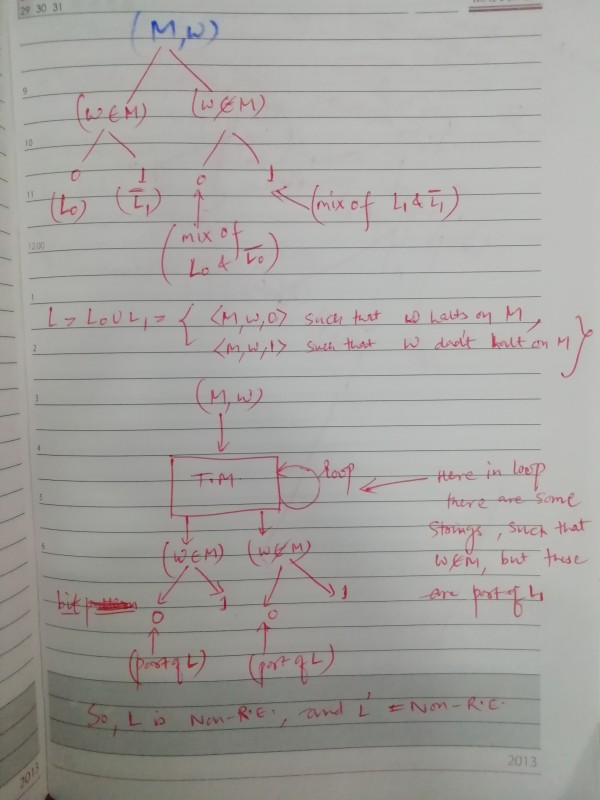 29 30 31
(M, W)
9
(W∈M) (W∉M)
10
0 1 0 1
11
(L₀) (L̄₁) (mix of L₁ & L̄₁)
12:00
(mix of
L₀ & L̄₀)
1
L = L₀∪L₁ = { <M,W,0> such that W halts on M,
2
<M,W,1> such that W don't halt on M }
3
(M,W)
4
T.M. loop
Here in loop
there are some
5
strings, such that
6
(W∈M) (W∉M) W∉M, but these
are part of L₁
bit 0 1 0 1
(part of L) (part of L)
So, L is Non-R.E., and L' = Non-R.E.
2013
2013